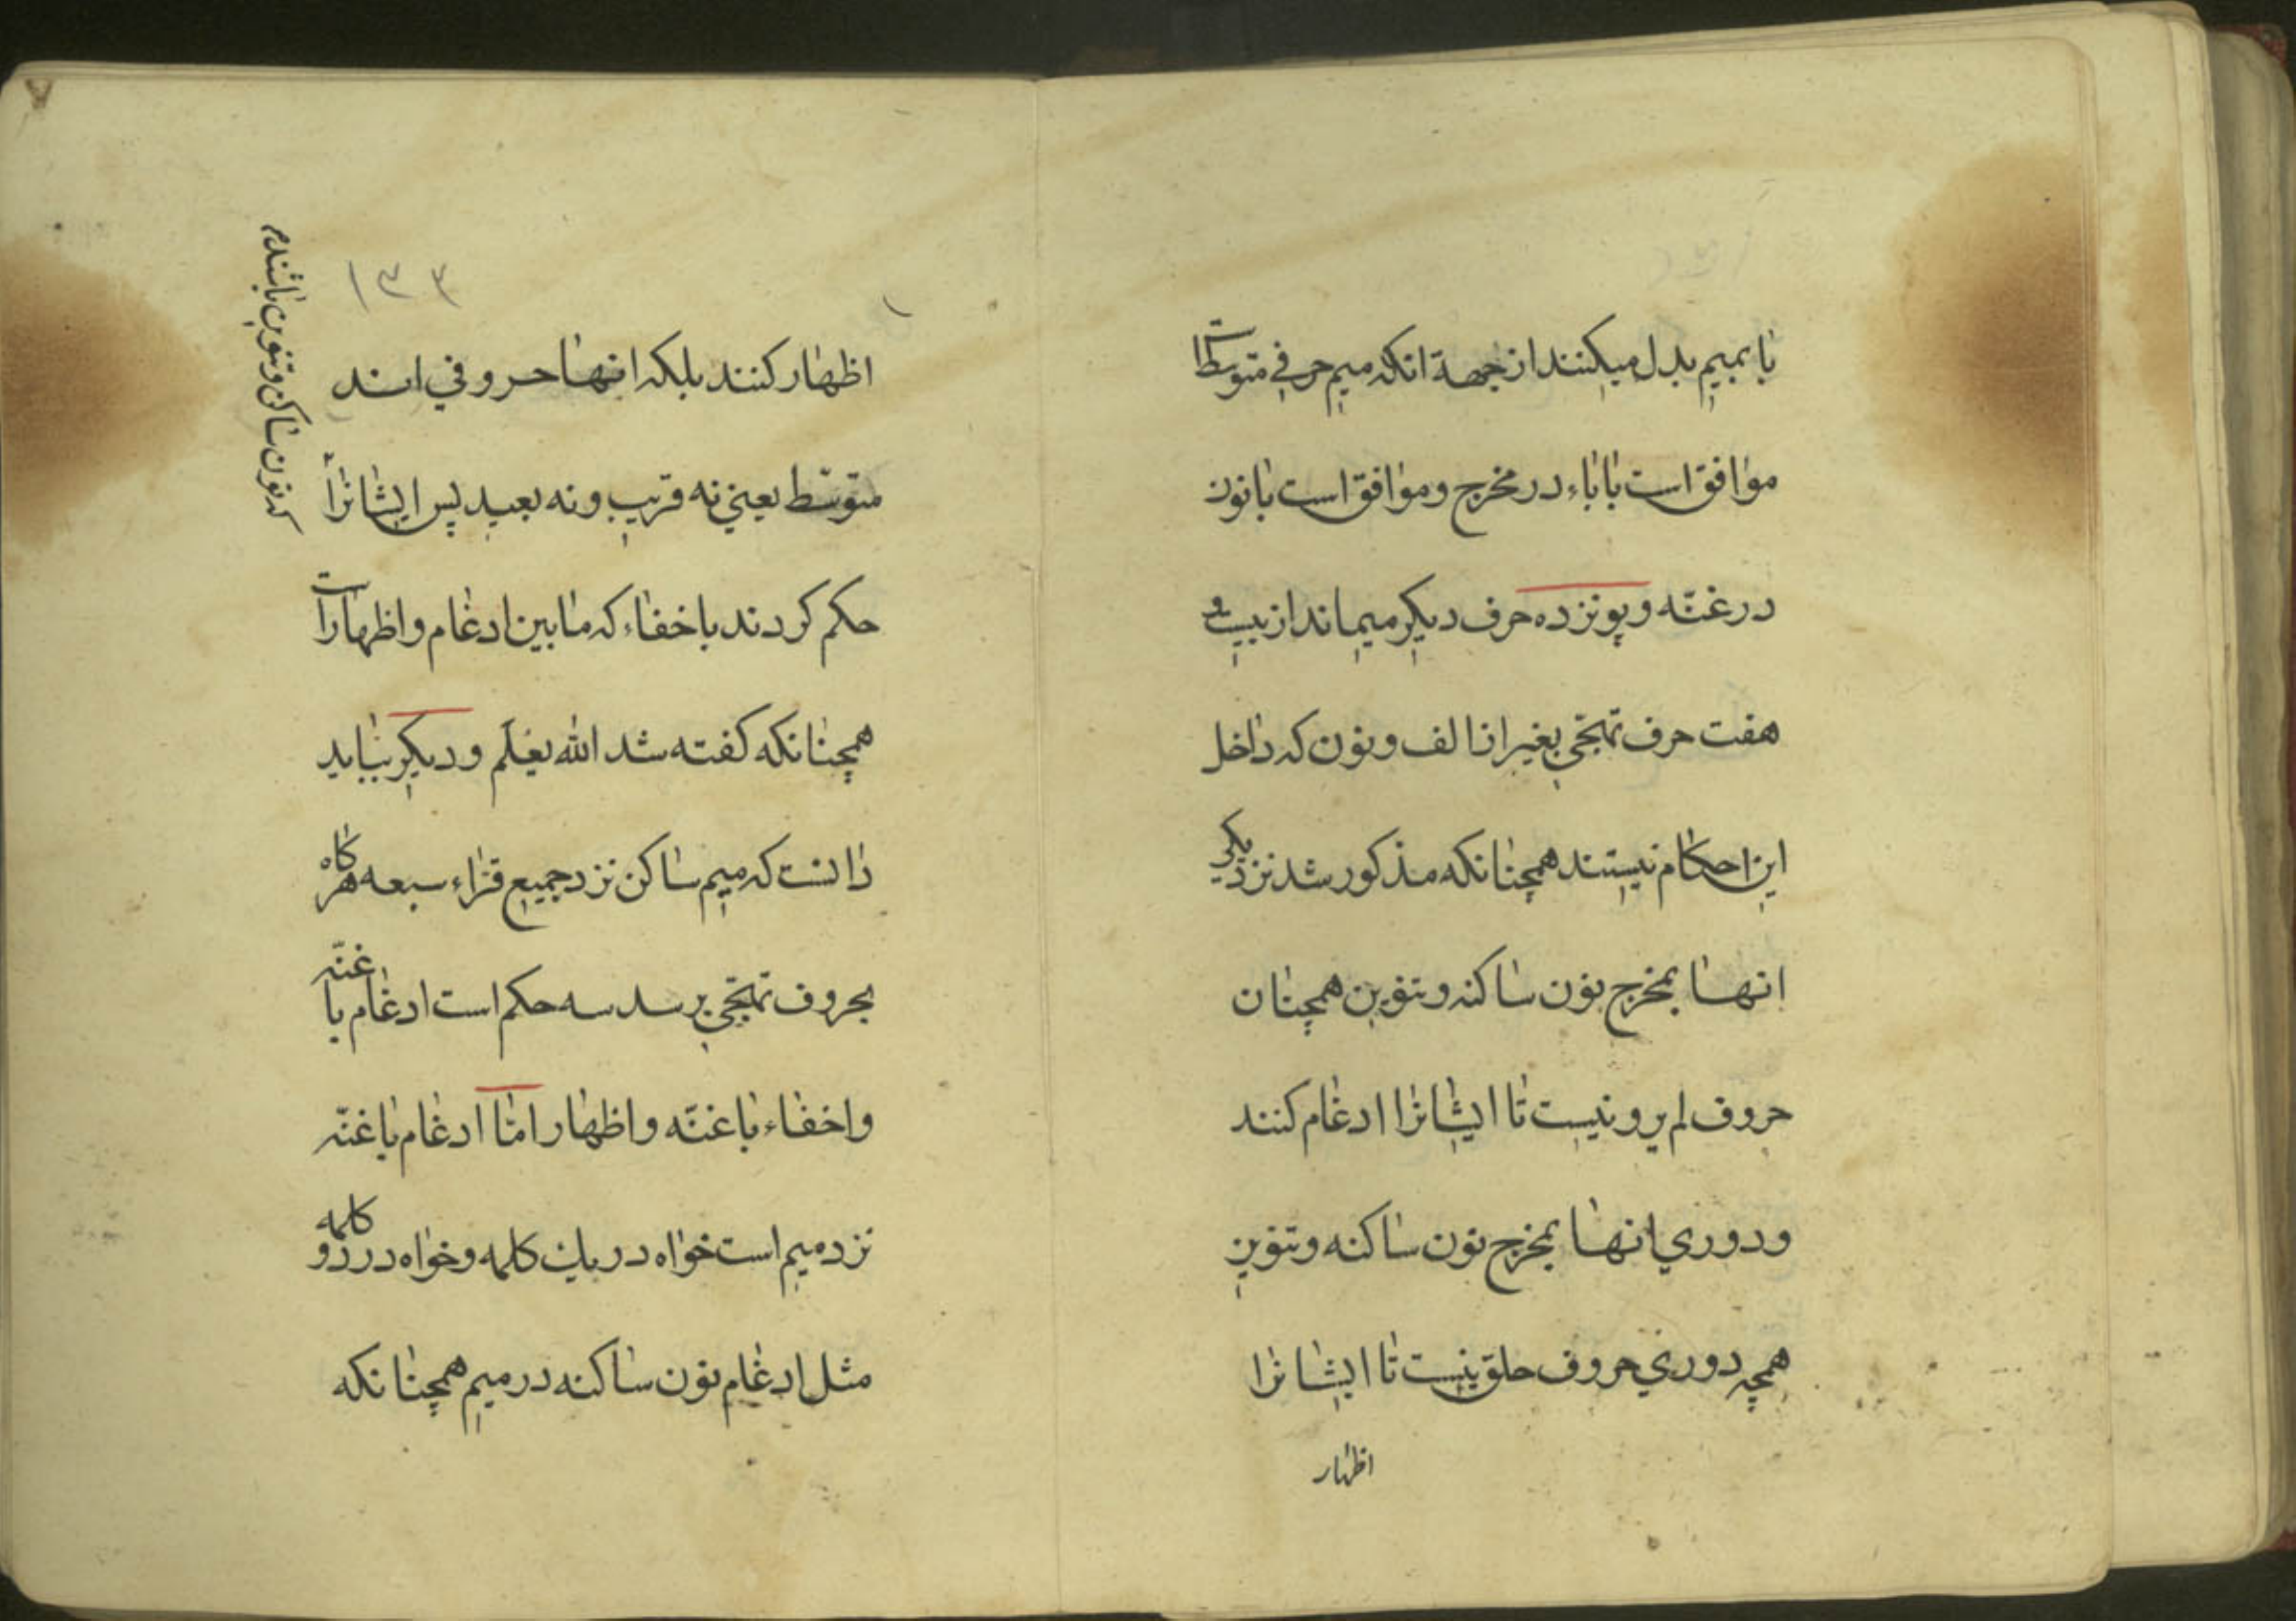 با بمیم بدل میکنند از جهة انکه میم حرفی متوسّط است
موافق است با باء در مخرج و موافق است با نون
در غنّه و پونزده حرف دیکر میماند از بیست و
هفت حرف تهجّی بغیر از الف و نون که داخل
این احکام نیستند همچنانکه مذکور شد نزدیکی
انها بمخرج نون ساکنه و تنوین همچنان
حروف لم یرو نیست تا ایشانرا ادغام کنند
و دوری انها بمخرج نون ساکنه و تنوین
همچه دوری حروف حلق نیست تا ایشانرا
اظهار
۱۳۳
اظهار کنند بلکه انها حروفی اند
متوسّط یعنی نه قریب و نه بعید پس ایشانرا
حکم کردند باخفاء که ما بین ادغام و اظهار است
همچنانکه کفته شد الله یعلم و دیکر بباید
دانست که میم ساکن نزد جمیع قرّاء سبعه هرکاه
بحروف تهجّی برسد سه حکم است ادغام با غنّه
و اخفاء با غنّه و اظهار امّا ادغام با غنّه
نزد میم است خواه در یک کلمه و خواه در دو کلمه
مثل ادغام نون ساکنه در میم همچنانکه
که نون ساکن و تنوین باشند